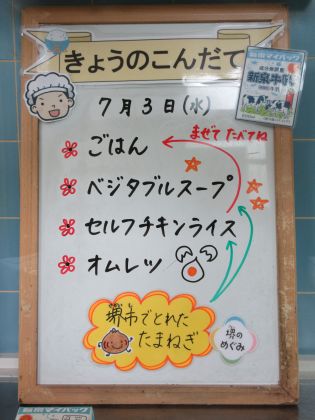 きょうのこんだて
7月3日(水)
ごはん
まぜてたべてね
ベジタブルスープ
セルフチキンライス
オムレツ
堺市でとれた
たまねぎ
堺の
めぐみ